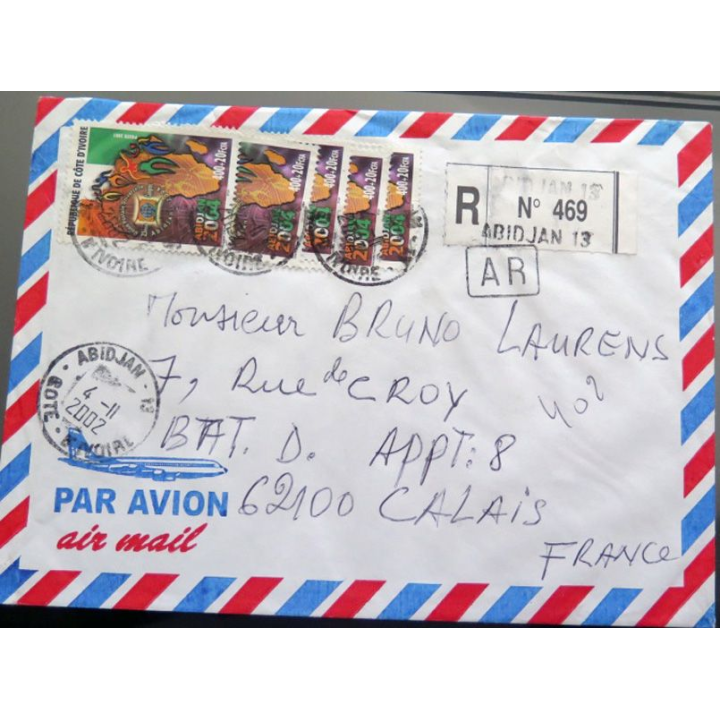 RÉPUBLIQUE DE CÔTE D'IVOIRE
ABIDJAN
2004
400+20FCFA
ABIDJAN
2004
400+20FCFA
2004
400+20FCFA
ABIDJAN
2004
400+20FCFA
ABIDJAN
2004
D'IVOIRE
D'IVOIRE
D'IVOIRE
ABIDJAN 13
R N° 469
ABIDJAN 13
AR
Monsieur BRUNO LAURENS
7, Rue de CROY
402
BAT. D. APPT: 8
62100 CALAIS
FRANCE
ABIDJAN · 13
4 -11
2002
COTE D'IVOIRE
PAR AVION
air mail